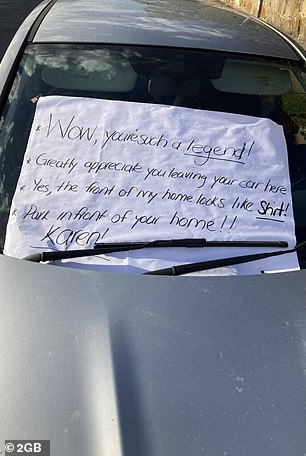 * Wow, you're such a legend!
* Greatly appreciate you leaving your car here
* Yes, the front of my home looks like Shit!
Park in front of your home!!
Karen!
© 2GB